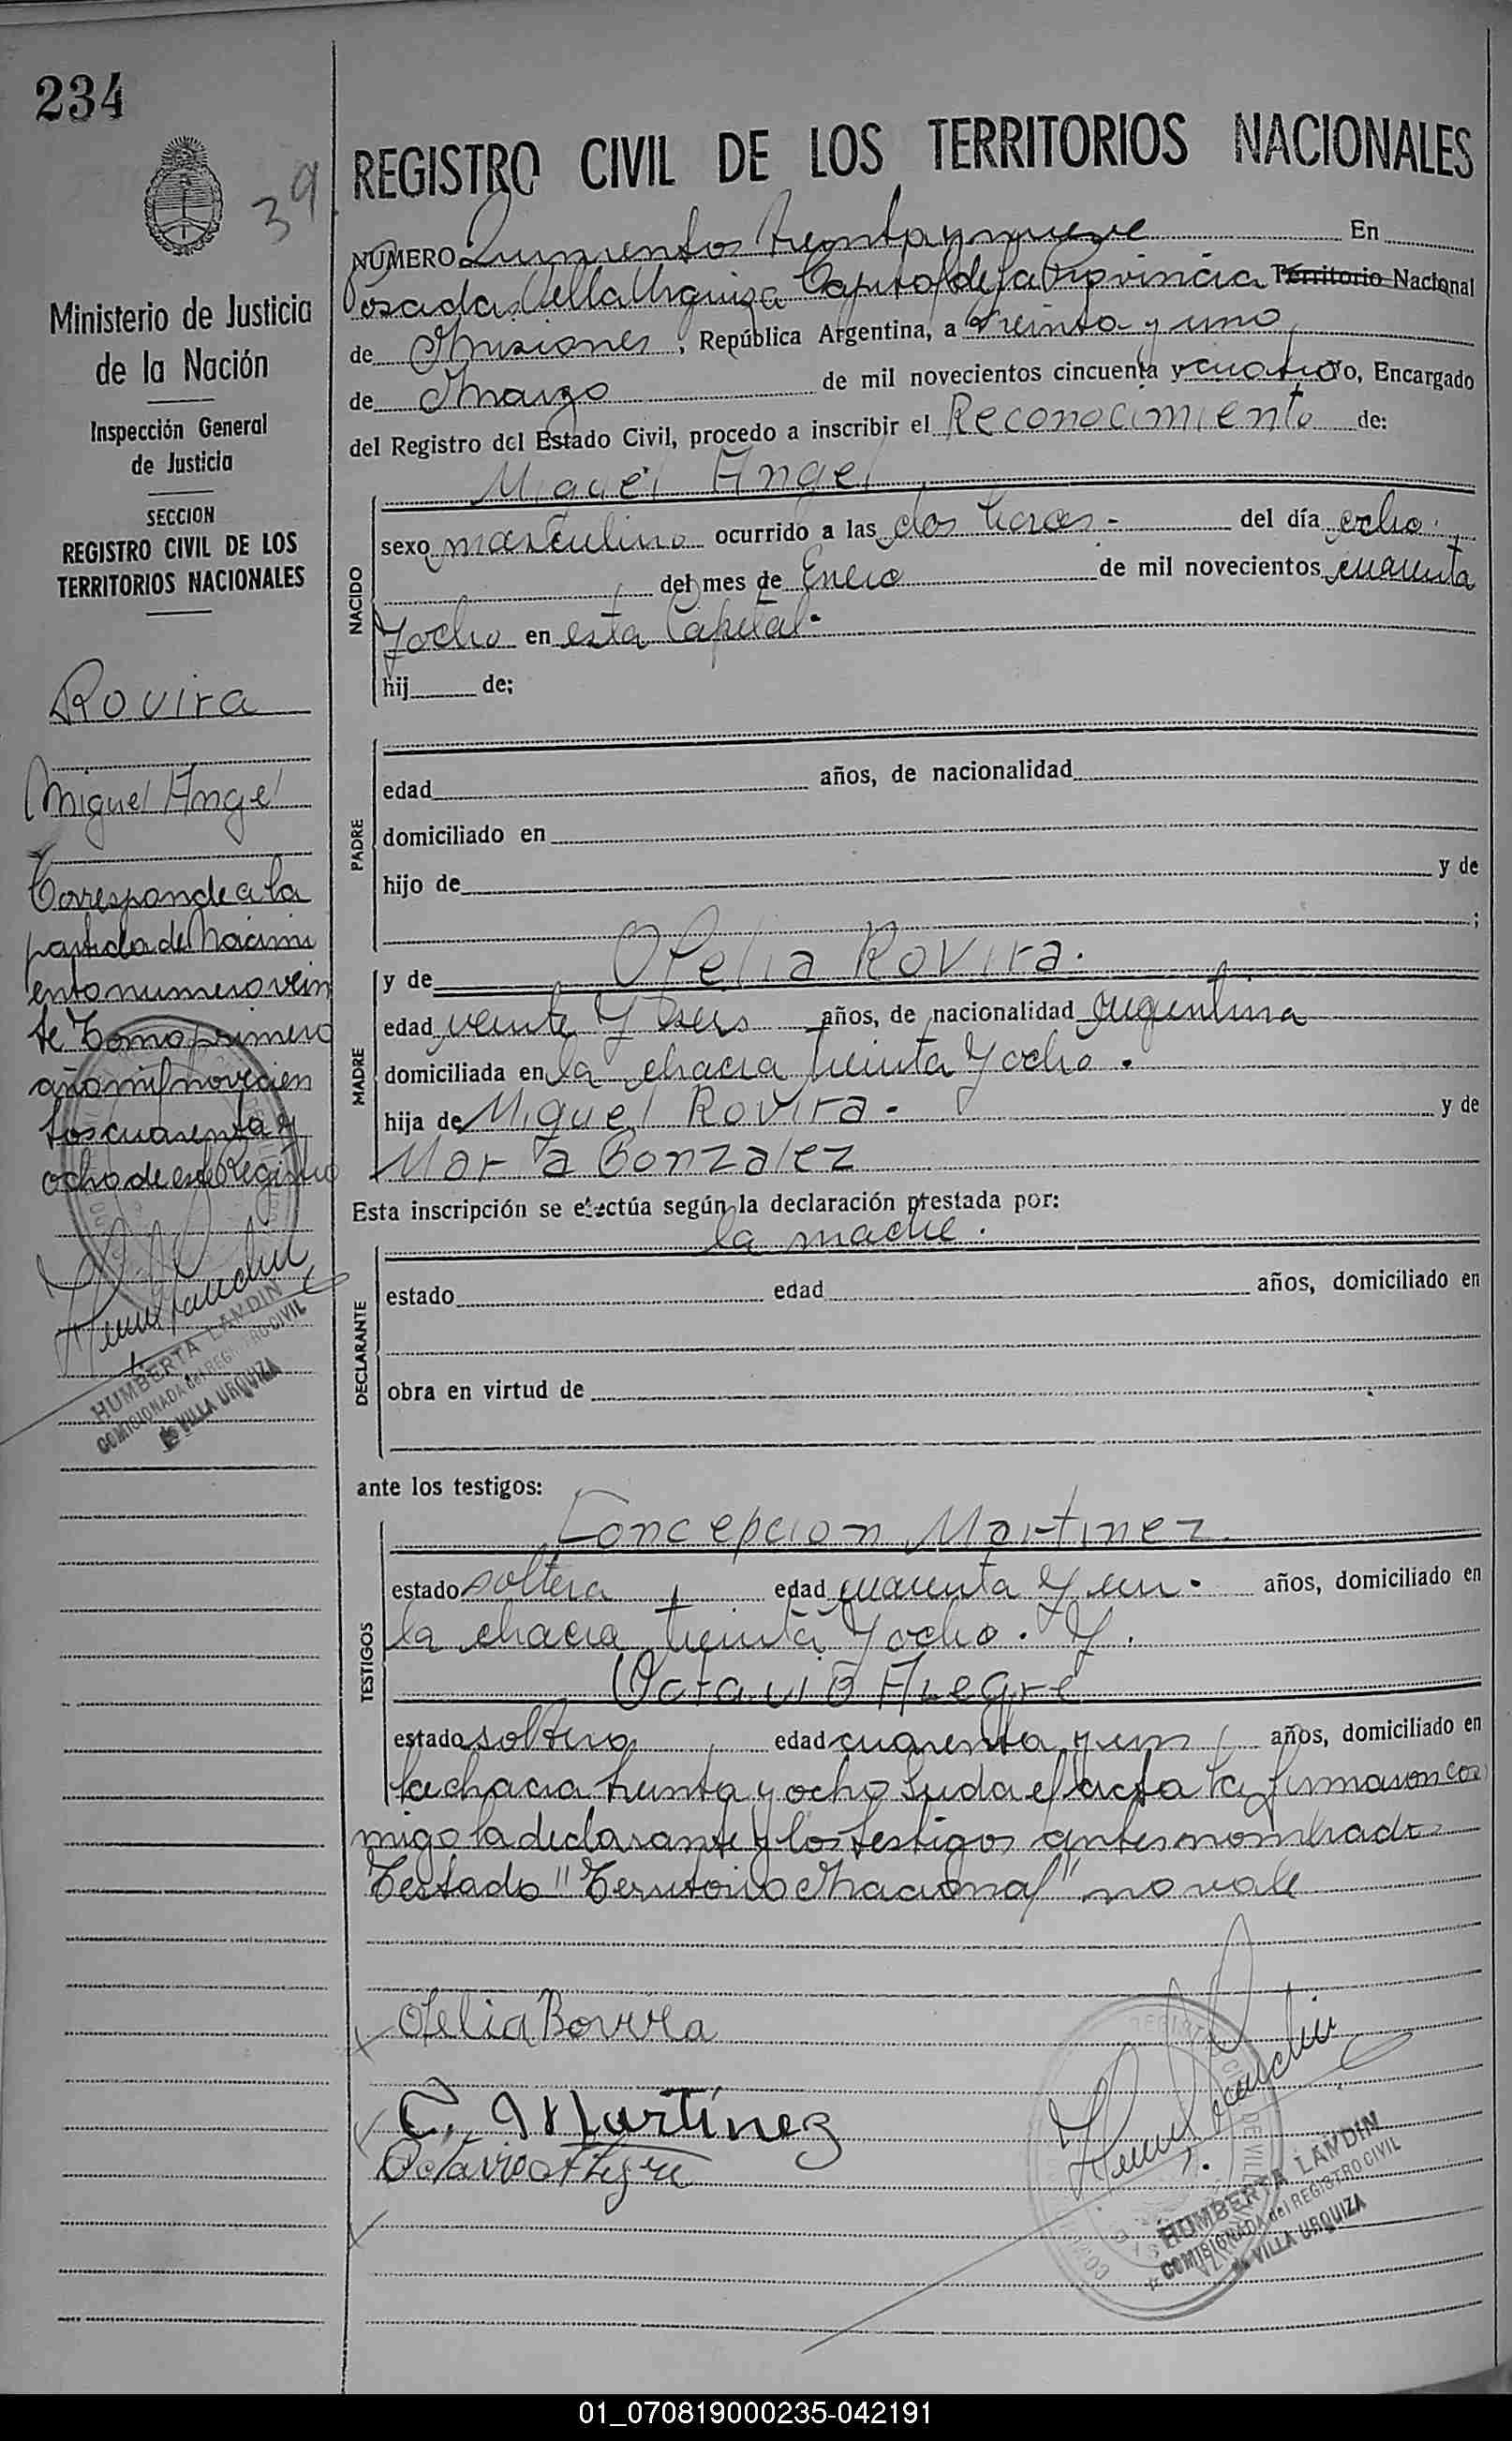 234
39
Ministerio de Justicia
de la Nación
Inspección General
de Justicia
SECCION
REGISTRO CIVIL DE LOS
TERRITORIOS NACIONALES
Rovira
Miguel Angel
Corresponde a la
partida de Nacimi
ento numero vein
te Tomo primero
año mil novecien
tos cuarenta y
ocho de este Registro
HUMBERTA LANDIN
COMISIONADA del REGISTRO CIVIL
de VILLA URQUIZA
REGISTRO CIVIL DE LOS TERRITORIOS NACIONALES
NUMERO Quinientos treinta y nueve En
Posadas Villa Urquiza Capital de la Provincia Territorio Nacional
de Misiones, República Argentina, a treinta y uno
de Marzo de mil novecientos cincuenta y cuatro yo, Encargado
del Registro del Estado Civil, procedo a inscribir el Reconocimiento de:
Miguel Angel
NACIDO
sexo masculino ocurrido a las dos horas - del día ocho
del mes de Enero de mil novecientos cuarenta
y ocho en esta Capital.
hij de;
PADRE
edad años, de nacionalidad
domiciliado en
hijo de y de
;
MADRE
y de Ofelia Rovira.
edad veinte y seis años, de nacionalidad argentina
domiciliada en la chacra treinta y ocho.
hija de Miguel Rovira - y de
Maria Gonzalez
Esta inscripción se efectúa según la declaración prestada por:
la madre.
DECLARANTE
estado edad años, domiciliado en
obra en virtud de
ante los testigos:
Concepcion Martinez
TESTIGOS
estado soltera edad cuarenta y un. años, domiciliado en
la chacra treinta y ocho. y.
Octavio Alegre
estado soltero edad cuarenta y un años, domiciliado en
la chacra treinta y ocho Leida el acta la firmaron con
migo la declarante y los testigos antes nombrados
Testado "Territorio Nacional" no vale
Ofelia Rovira
C. Martínez
Octavio Alegre
HUMBERTA LANDIN
COMISIONADA del REGISTRO CIVIL
de VILLA URQUIZA
01_070819000235-042191